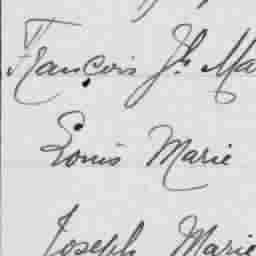 François Jh Ma
Louis Marie
Joseph Marie